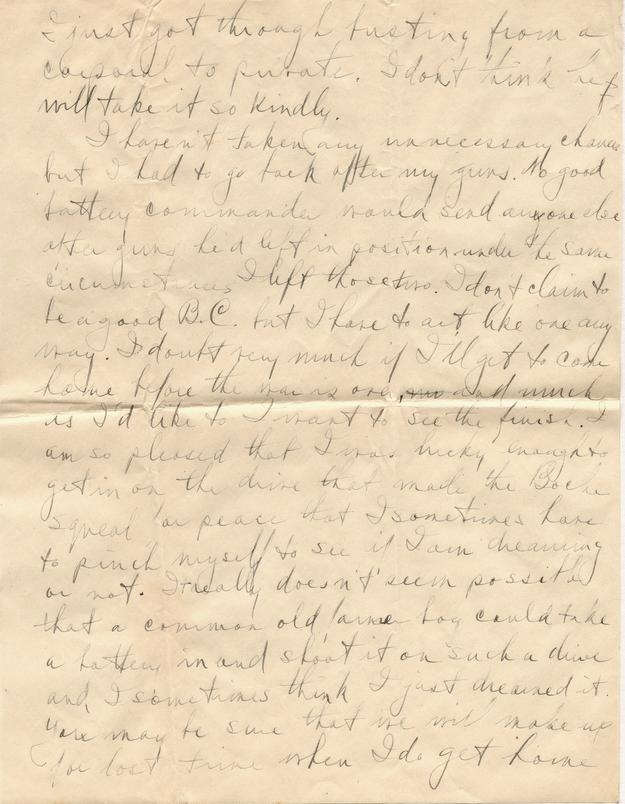 I just got through busting from a
corporal to private. I don't think he
will take it so kindly.
I haven't taken any unnecessary chances
but I had to go back after my guns. No good
battery commander would send anyone else
after guns he'd left in position under the same
circumstances I left those two. I don't claim to
be a good B.C. but I have to act like one any
way. I doubt very much if I'll get to come
home before the war is over, and much
as I'd like to I want to see the finish. I
am so pleased that I was lucky enough to
get in on the drive that made the Boche
squeal for peace that I sometimes have
to pinch myself to see if I am dreaming
or not. It really doesn't seem possible
that a common old farmer boy could take
a battery in and shoot it on such a drive
and I sometimes think I just dreamed it.
You may be sure that we will make up
for lost time when I do get home